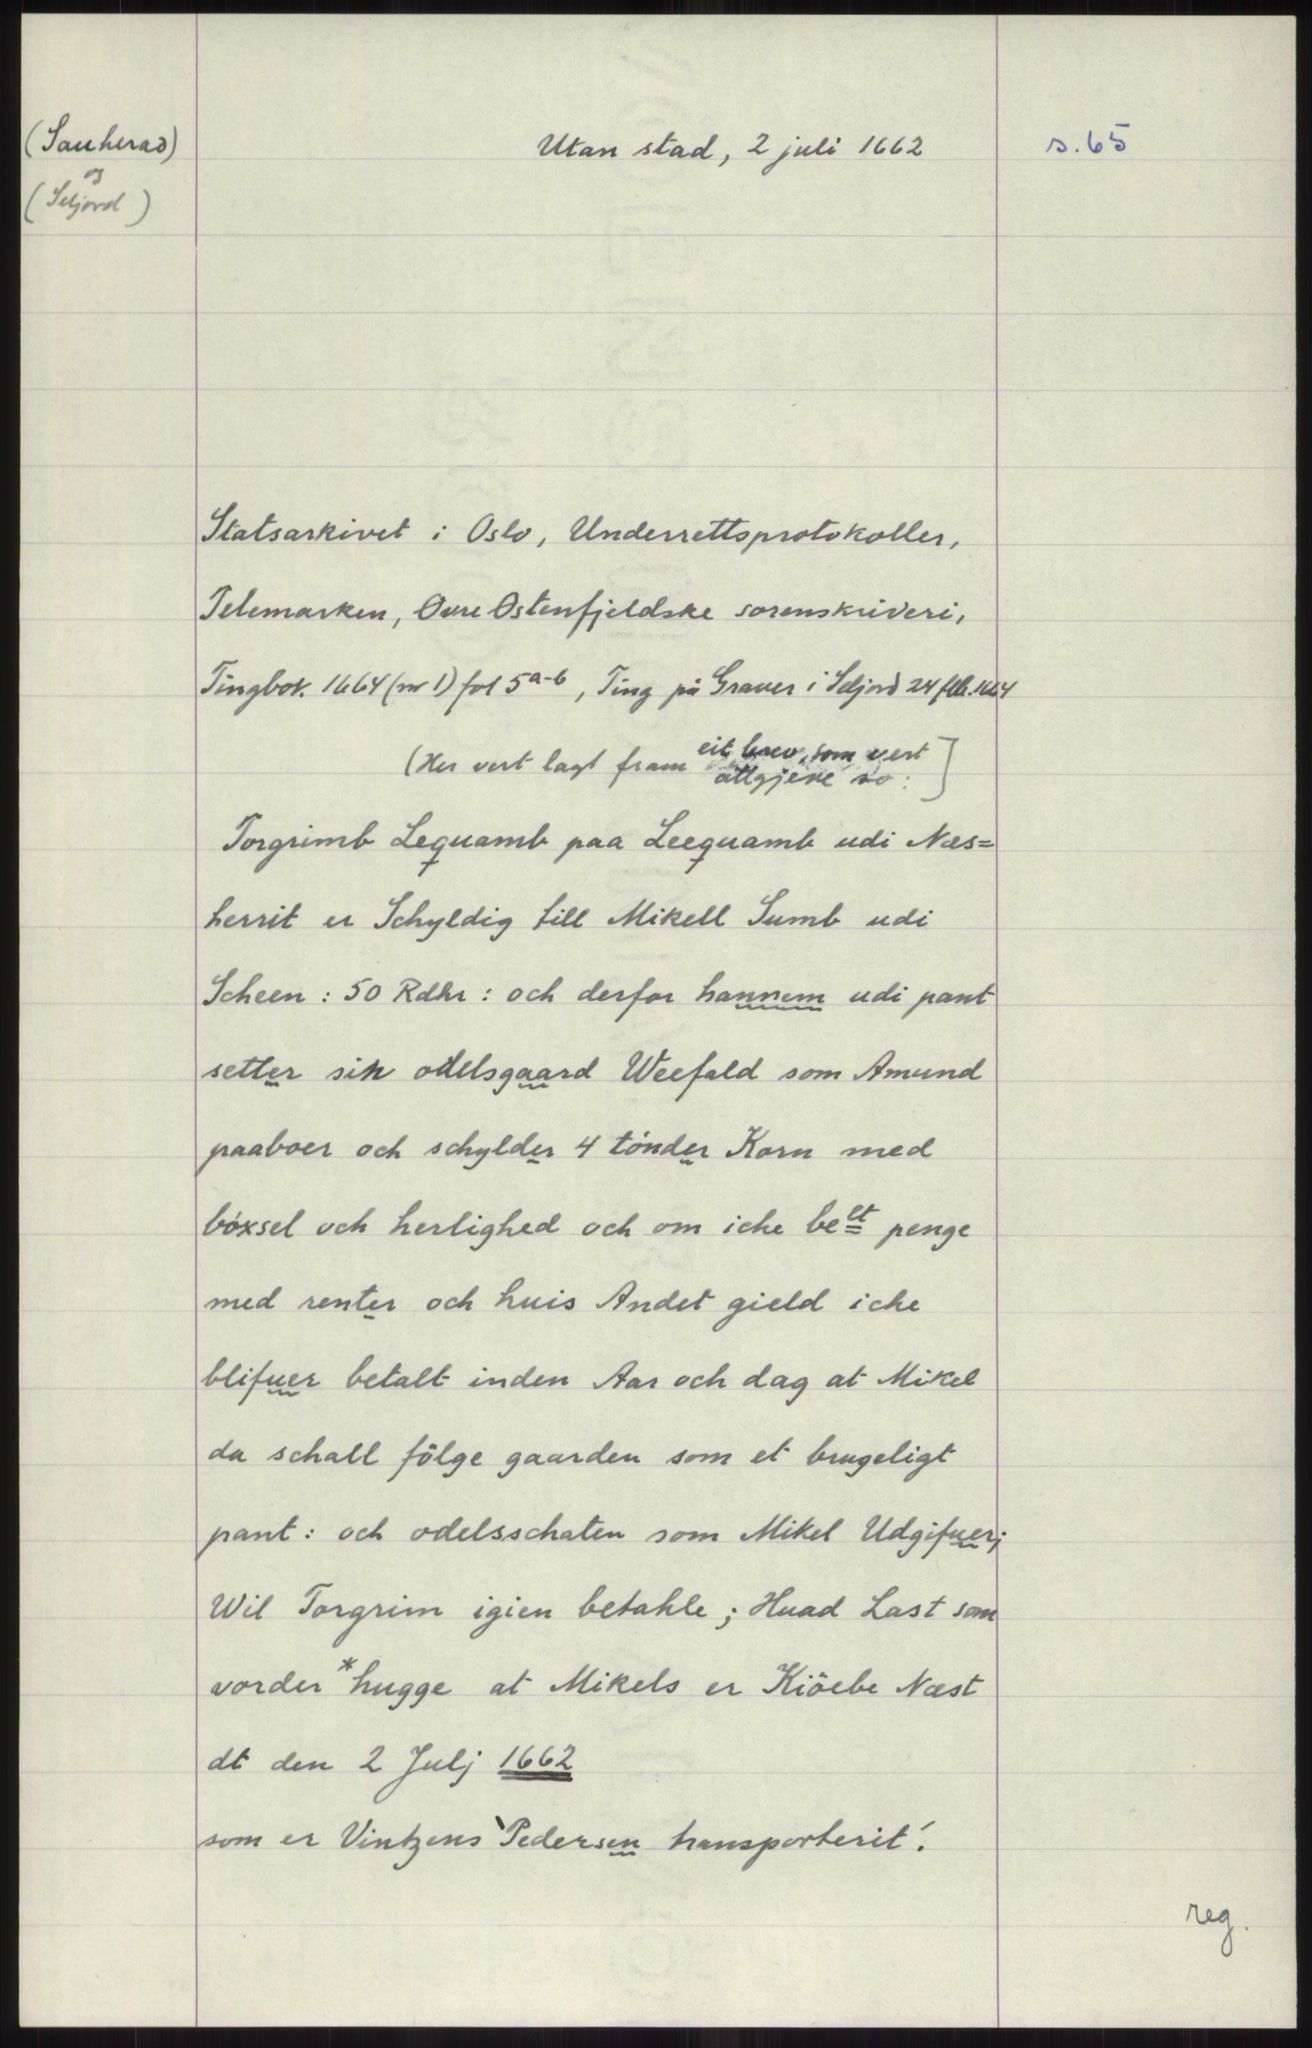 (Sauherad)
og
(Seljord)
Utan stad, 2 juli 1662
s. 65
Statsarkivet i Oslo, Underrettsprotokoller,
Telemarken, Øvre Østenfjeldske sorenskriveri,
Tingbok. 1664 (nr 1) fol 5a-b, Ting på Graver i Seljord 24 feb. 1664
(Her vert lagt fram eit brev, som vert
attgjeve so:]
Torgrimb Lequamb paa Leequamb udi Næs=
herrit er Schyldig till Mikell Sumb udi
Scheen: 50 Rdhr: och derfor hannem udi pant
setter sin odelsgaard Weefald som Amund
paaboer och schylder 4 tönder Korn med
böxsel och herlighed och om iche belt penge
med renter och huis Andet gield iche
blifuer betalt inden Aar och dag at Mikel
da schall fölge gaarden som et brugeligt
pant: och odelsschaten som Mikel Udgifuer;
Wil Torgrim igien betahle; Huad Last som
vorder *hugge at Mikels er Kiöebe Næst
dt den 2 Julj 1662
som er Vintzens Pedersen transporterit.
reg.